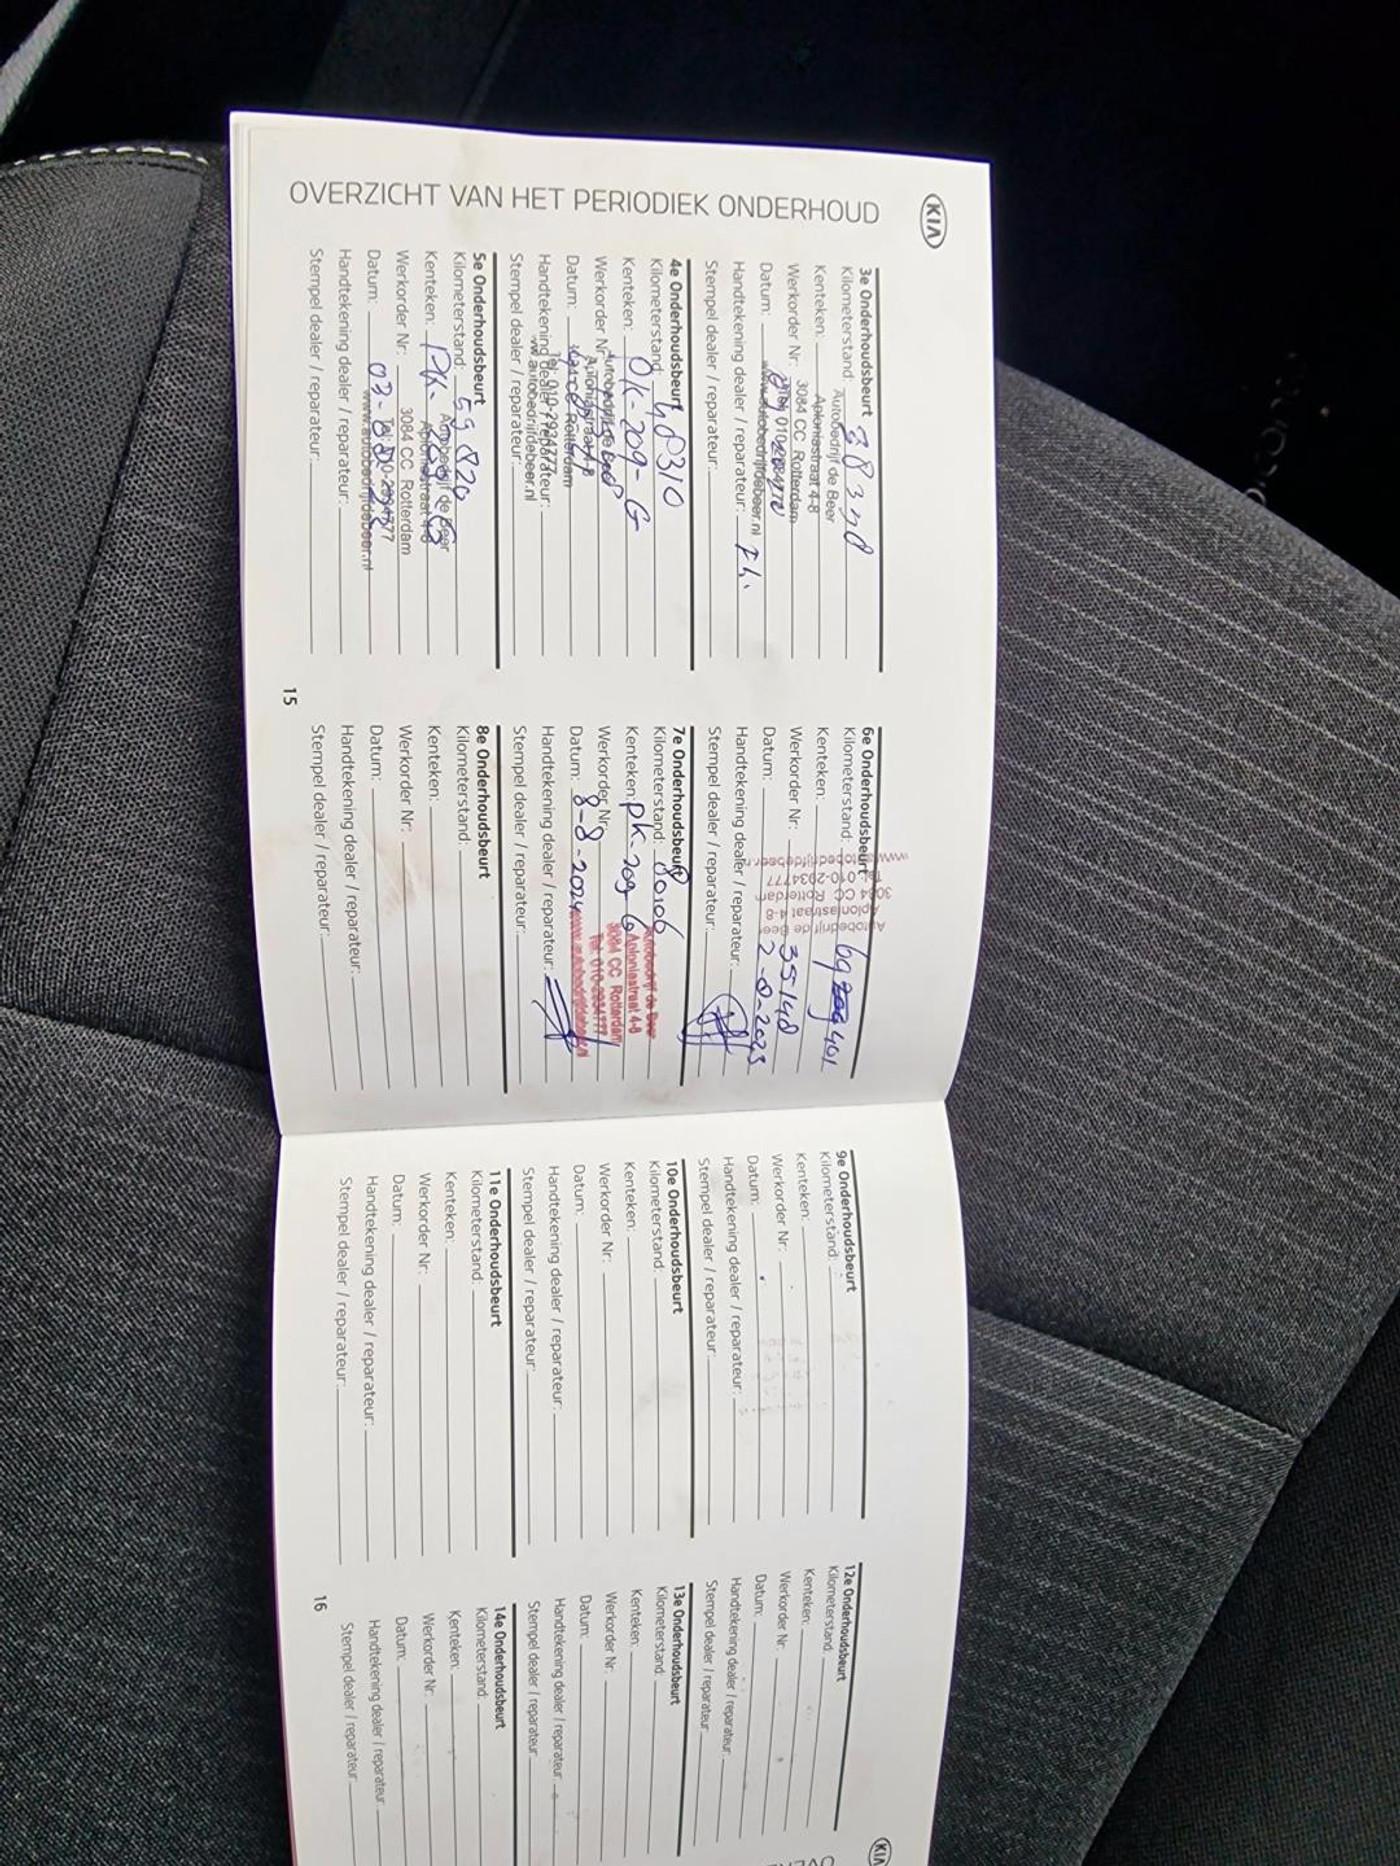 KIA
OVERZICHT VAN HET PERIODIEK ONDERHOUD
3e Onderhoudsbeurt
Kilometerstand:
Autobedrijf de Beer
Kenteken:
Aploniastraat 4-8
Werkorder Nr:
3084 CC Rotterdam
Datum:
www.autobedrijfdebeer.nl
Handtekening dealer / reparateur:
Stempel dealer / reparateur:
4e Onderhoudsbeurt
Kilometerstand: 48310
Kenteken: PK-209-G
Autobedrijf de Beer
Werkorder Nr:
Aploniastraat 4-8
Datum:
Rotterdam
Tel: 010-2934777
Handtekening dealer / reparateur:
www.autobedrijfdebeer.nl
Stempel dealer / reparateur:
5e Onderhoudsbeurt
Kilometerstand: 59820
Autobedrijf de Beer
Kenteken: PK-
Aploniastraat 4-8
Werkorder Nr:
3084 CC Rotterdam
Tel: 010-2934777
Datum: 03-8-
www.autobedrijfdebeer.nl
Handtekening dealer / reparateur:
Stempel dealer / reparateur:
15
6e Onderhoudsbeurt
Kilometerstand: 69401
Kenteken:
Werkorder Nr: 35148
Datum: 2-8-2023
Autobedrijf de Beer
Aploniastraat 4-8
3084 CC Rotterdam
Tel: 010-2934777
Handtekening dealer / reparateur:
Stempel dealer / reparateur:
7e Onderhoudsbeurt
Kilometerstand: 80106
Autobedrijf de Beer
Kenteken: PK-209-G
Aploniastraat 4-8
Werkorder Nr:
3084 CC Rotterdam
Tel: 010-2934777
Datum: 8-8-2024
www.autobedrijfdebeer.nl
Handtekening dealer / reparateur:
Stempel dealer / reparateur:
8e Onderhoudsbeurt
Kilometerstand:
Kenteken:
Werkorder Nr:
Datum:
Handtekening dealer / reparateur:
Stempel dealer / reparateur:
9e Onderhoudsbeurt
Kilometerstand:
Kenteken:
Werkorder Nr:
Datum:
Handtekening dealer / reparateur:
Stempel dealer / reparateur:
10e Onderhoudsbeurt
Kilometerstand:
Kenteken:
Werkorder Nr:
Datum:
Handtekening dealer / reparateur:
Stempel dealer / reparateur:
11e Onderhoudsbeurt
Kilometerstand:
Kenteken:
Werkorder Nr:
Datum:
Handtekening dealer / reparateur:
Stempel dealer / reparateur:
16
12e Onderhoudsbeurt
Kilometerstand:
Kenteken:
Werkorder Nr:
Datum:
Handtekening dealer / reparateur:
Stempel dealer / reparateur:
13e Onderhoudsbeurt
Kilometerstand:
Kenteken:
Werkorder Nr:
Datum:
Handtekening dealer / reparateur:
Stempel dealer / reparateur:
14e Onderhoudsbeurt
Kilometerstand:
Kenteken:
Werkorder Nr:
Datum:
Handtekening dealer / reparateur:
Stempel dealer / reparateur:
KIA